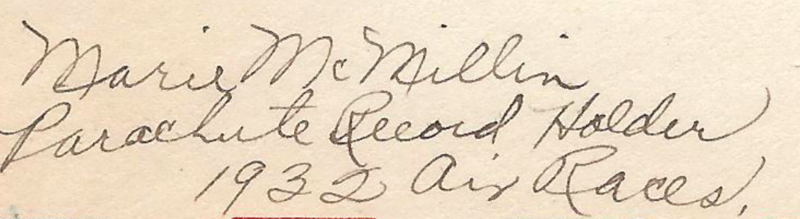 Marie McMillin
Parachute Record Holder
1932 Air Races.